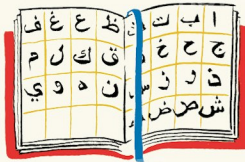 ا ب ت
ج ح خ
ذ ر ز س
ش ص ض
ظ ع غ ف
ق ك ل م
ن ه و ي